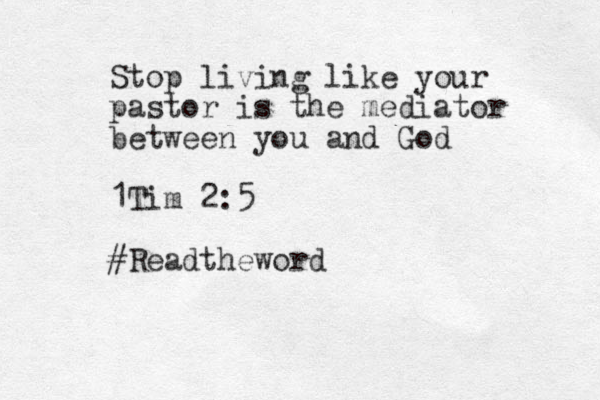 Stop living like your
pastor is the mediator
between you and God
1Tim 2:5
#Readtheword